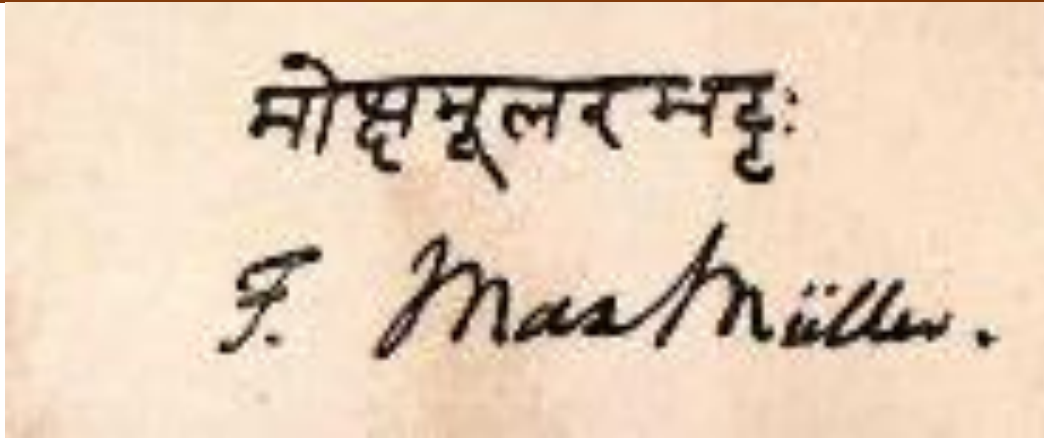 मोक्षमूलरभट्टः
F. Max Müller.